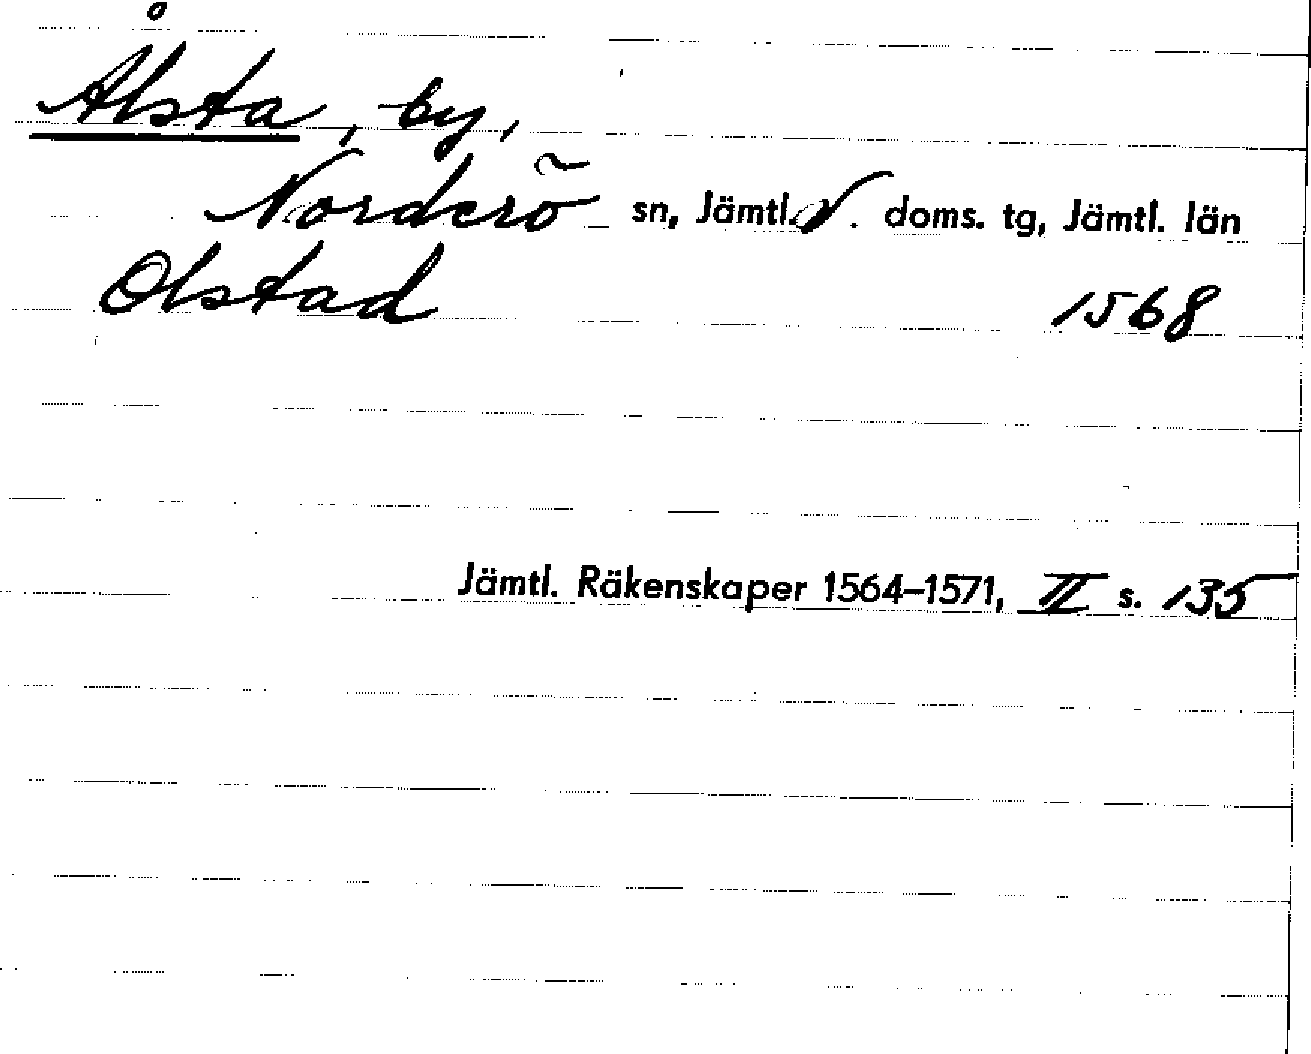 Ålsta, by,
Norderö sn, Jämtl. V. doms. tg, Jämtl. län
Olstad 1568
Jämtl. Räkenskaper 1564–1571, II s. 135